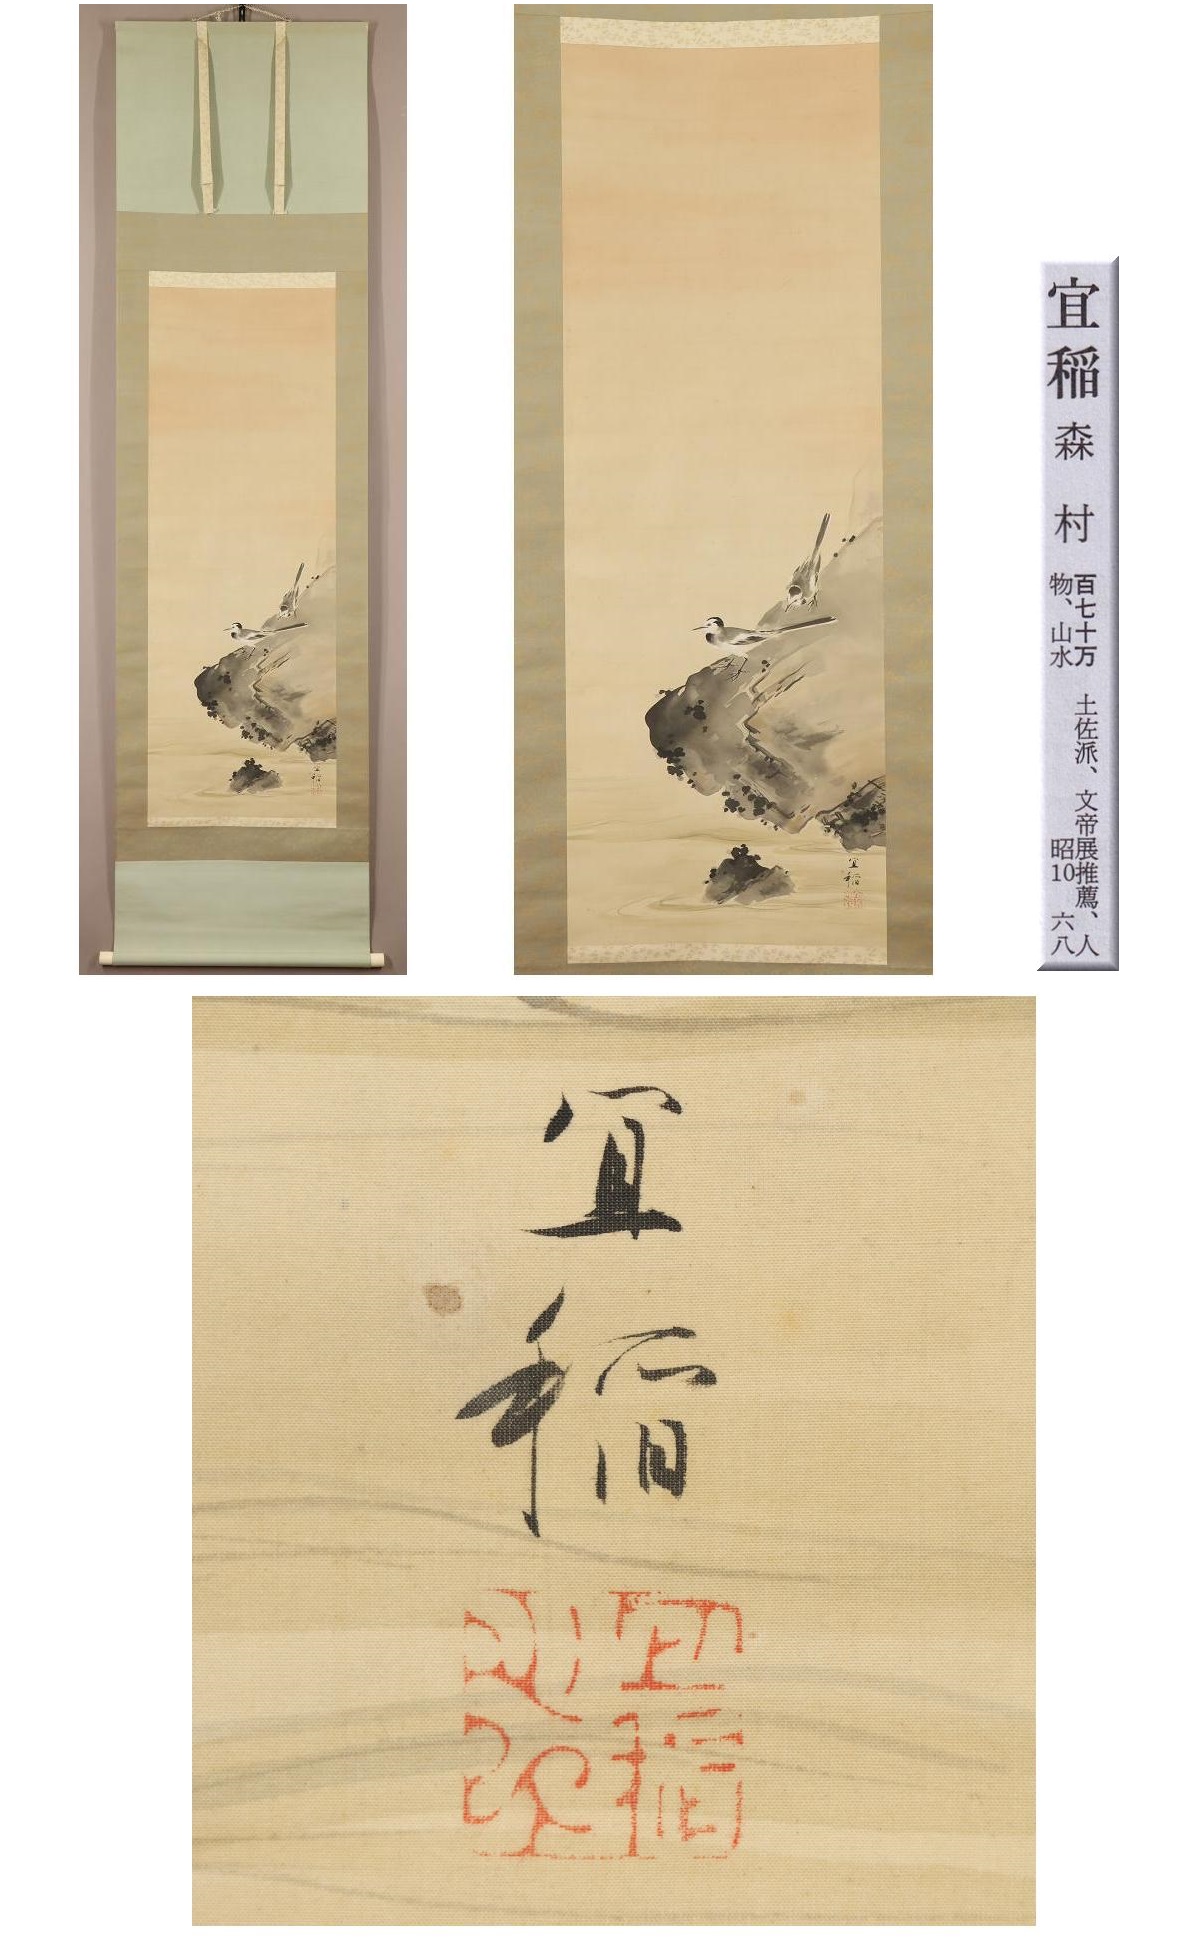 宜稲
森村
百七十万 土佐派、文帝展推薦、人
物、山水 昭10 六八
宜稲
宜稲